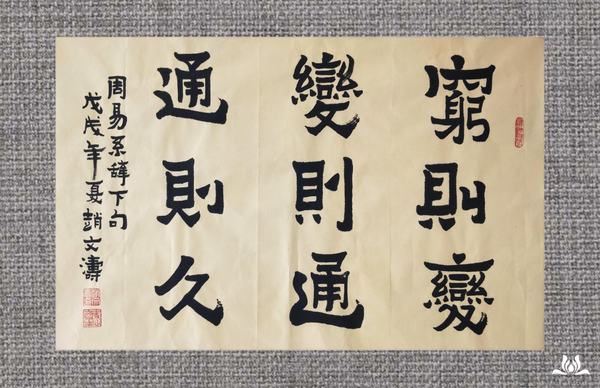 窮則變
變則通
通則久
周易系辭下句
戊辰年夏趙文濤